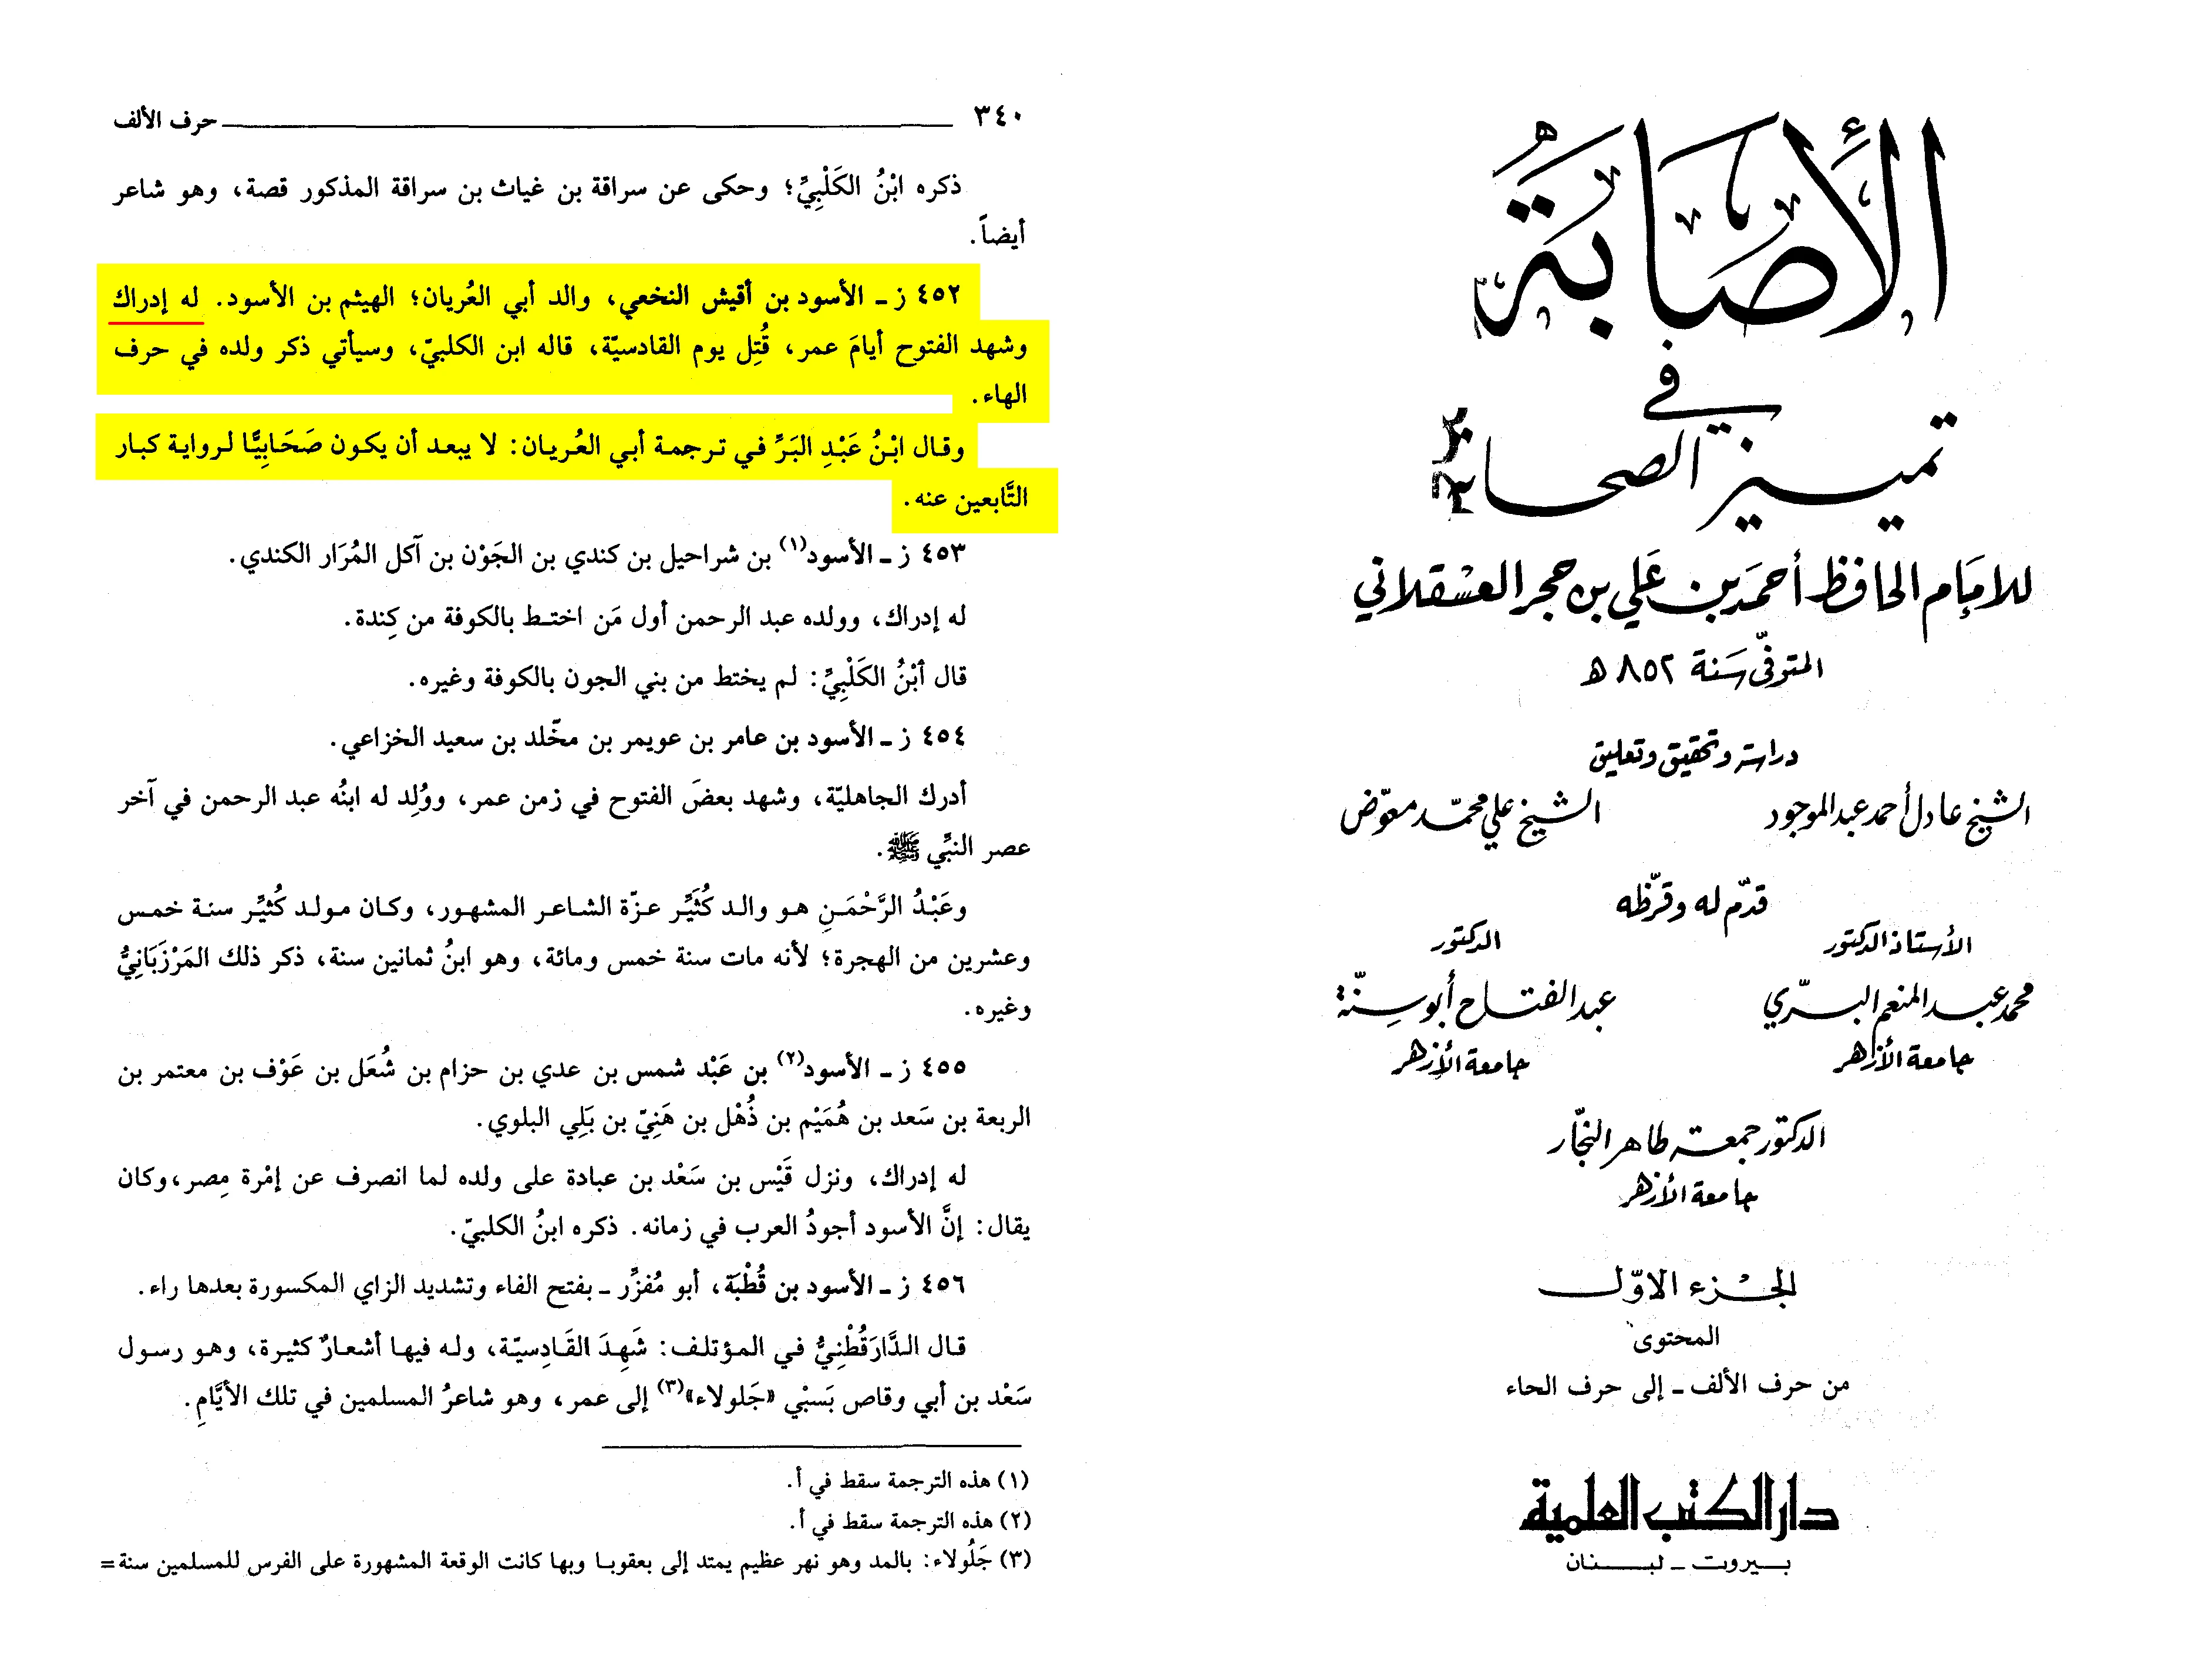 الإصابة
في
تمييز الصحابة
للإمام الحافظ أحمد بن علي بن حجر العسقلاني
المتوفى سنة ٨٥٢ هـ
دراسة وتحقيق وتعليق
الشيخ عادل أحمد عبد الموجود
الشيخ علي محمد معوّض
قدّم له وقرّظه
الأستاذ الدكتور
محمد عبد المنعم البرّي
جامعة الأزهر
الدكتور
عبد الفتاح أبو سنّة
جامعة الأزهر
الدكتور جمعة طاهر النجّار
جامعة الأزهر
الجزء الأوّل
المحتوى
من حرف الألف ـ إلى حرف الحاء
دار الكتب العلمية
بيروت ـ لبنان
٣٤٠ حرف الألف
ذكره ابْنُ الكَلْبِيِّ؛ وحكى عن سراقة بن غياث بن سراقة المذكور قصة، وهو شاعر
أيضاً.
٤٥٢ ز ـ الأسود بن أقيش النخعي، والد أبي العُريان؛ الهيثم بن الأسود. له إدراك
وشهد الفتوح أيامَ عمر، قُتِل يوم القادسيّة، قاله ابن الكلبيّ، وسيأتي ذكر ولده في حرف
الهاء.
وقال ابْنُ عَبْدِ البَرِّ في ترجمة أبي العُريان: لا يبعد أن يكون صَحَابِيًّا لرواية كبار
التَّابعين عنه.
٤٥٣ ز ـ الأسود(١) بن شراحيل بن كندي بن الجَوْن بن آكل المُرَار الكندي.
له إدراك، وولده عبد الرحمن أول مَن اختط بالكوفة من كِندة.
قال ابْنُ الكَلْبِيِّ: لم يختط من بني الجون بالكوفة وغيره.
٤٥٤ ز ـ الأسود بن عامر بن عويمر بن مخّلد بن سعيد الخزاعي.
أدرك الجاهليّة، وشهد بعضَ الفتوح في زمن عمر، ووُلِد له ابنُه عبد الرحمن في آخر
عصر النبِّي ﷺ.
وعَبْدُ الرَّحْمَنِ هو والد كُثَيِّر عزّة الشاعر المشهور، وكان مولد كُثيِّر سنة خمس
وعشرين من الهجرة؛ لأنه مات سنة خمس ومائة، وهو ابنُ ثمانين سنة، ذكر ذلك المَرْزَبَانِيُّ
وغيره.
٤٥٥ ز ـ الأسود(٢) بن عَبْد شمس بن عدي بن حزام بن شُعَل بن عَوْف بن معتمر بن
الربعة بن سَعد بن هُمَيْم بن ذُهْل بن هَنِيّ بن بَلِي البلوي.
له إدراك، ونزل قَيْس بن سَعْد بن عبادة على ولده لما انصرف عن إمْرة مِصر، وكان
يقال: إنَّ الأسود أجودُ العرب في زمانه. ذكره ابنُ الكلبيّ.
٤٥٦ ز ـ الأسود بن قُطْبَة، أبو مُفزِّر ـ بفتح الفاء وتشديد الزاي المكسورة بعدها راء.
قال الدَّارَقُطْنِيُّ في المؤتلف: شَهِدَ القَادِسيّة، وله فيها أشعارٌ كثيرة، وهو رسول
سَعْد بن أبي وقاص بَسبْي «جَلولاء»(٣) إلى عمر، وهو شاعرُ المسلمين في تلك الأيَّامِ.
(١) هذه الترجمة سقط في أ.
(٢) هذه الترجمة سقط في أ.
(٣) جَلُولاء: بالمد وهو نهر عظيم يمتد إلى بعقوبا وبها كانت الوقعة المشهورة على الفرس للمسلمين سنة =